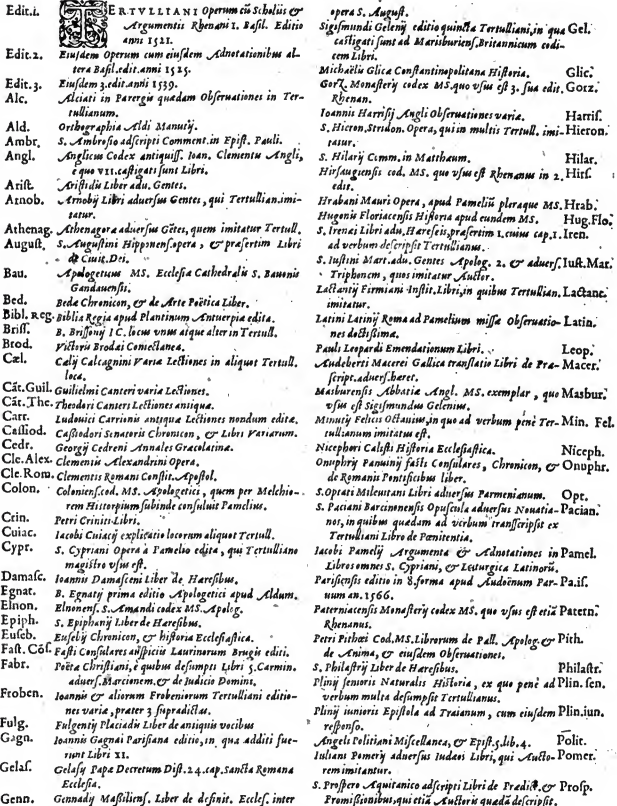 Edit.1. TERTVLLIANI Operum cũ Scholiis &
Argumentis Rhenani 1. Basil. Editio
anni 1521.
Edit.2. Eiusdem Operum cum eiusdem Adnotationibus al-
tera Basil.edit.anni 1525.
Edit.3. Eiusdem 3.edit.anni 1539.
Alc. Alciati in Parergis quædam Obseruationes in Ter-
tullianum.
Ald. Orthographia Aldi Manutij.
Ambr. S. Ambrosio adscripti Comment.in Epist. Pauli.
Angl. Anglicus Codex antiquiss. Ioan. Clementis Angli,
è quo VII.castigati sunt Libri.
Arist. Aristidis Liber adu. Gentes.
Arnob. Arnobij Libri aduersus Gentes, qui Tertullian.imi-
tatur.
Athenag. Athenagoræ aduersus Gẽtes, quem imitatur Tertull.
August. S.Augustini Hipponens.opera, & præsertim Libri
de Ciuit.Dei.
Bau. Apologeticus MS. Ecclesiæ Cathedralis S. Bauonis
Gandauensis.
Bed. Bedæ Chronicon, & de Arte Poëtica Liber.
Bibl. Reg. Biblia Regia apud Plantinum Antuerpiæ edita.
Briss. B. Brissonij IC. locus vnus atque alter in Tertull.
Brod. Victoris Brodæi Coniectanea.
Cæl. Cælij Calcagnini Variæ Lectiones in aliquot Tertull.
loca.
Cãt.Guil. Guilielmi Canteri variæ Lectiones.
Cãt.The. Theodori Canteri Lectiones antiquæ.
Carr. Ludouici Carrionis antiquæ Lectiones nondum editæ.
Cassiod. Cassiodori Senatoris Chronicon, & Libri Variarum.
Cedr. Georgij Cedreni Annales Græcolatina.
Cle.Alex. Clementis Alexandrini Opera.
Cle.Rom. Clementis Romani Constit.Apostol.
Colon. Coloniens.cod. MS. Apologetici, quem per Melchio-
rem Hittorpium subinde consuluit Pamelius.
Crin. Petri Criniti Libri.
Cuiac. Iacobi Cuiacij explicatio locorum aliquot Tertull.
Cypr. S. Cypriani Opera à Pamelio edita, qui Tertulliano
magistro vsus est.
Damasc. Ioannis Damasceni Liber de Hæresibus.
Egnat. B. Egnatij prima editio Apologetici apud Aldum.
Elnon. Elnonens. S.Amandi codex MS.Apolog.
Epiph. S. Epiphanij Liber de Hæresibus.
Euseb. Eusebij Chronicon, & historia Ecclesiastica.
Fast. Cõs. Fasti Consulares auspiciis Laurinorum Brugis editi.
Fabr. Poëtæ Christiani, è quibus desumpti Libri 5.Carmin.
aduers.Marcionem.& de Iudicio Domini.
Froben. Ioannis & aliorum Frobeniorum Tertulliani editio-
nes variæ, præter 3 supradictas.
Fulg. Fulgentij Placiadis Liber de antiquis vocibus
Gagn. Ioannis Gagnæi Parisiana editio, in qua additi fue-
runt Libri XI.
Gelas. Gelasij Papæ Decretum Dist.24.cap.Sancta Romana
Ecclesia.
Genn. Gennadij Massiliens. Liber de definit. Eccles. inter
opera S. August.
Sigismundi Gelenij editio quincta Tertulliani,in qua Gel.
castigati sunt ad Marisburiens.Britannicum codi-
cem Libri.
Michaëlis Glicæ Constantinopolitana Historia. Glic.
Gorz. Monasterij codex MS.quo vsus est 3. sua edit. Gorz.
Rhenan.
Ioannis Harrisij Angli Obseruationes variæ. Harris.
S. Hieron.Stridon. Opera, qui in multis Tertull. imi- Hieron.
tatur.
S. Hilarij Comm.in Matthæum. Hilar.
Hirsaugiensis cod. MS. quo vsus est Rhenanus in 2. Hirs.
edit.
Hrabani Mauri Opera, apud Pamelium pleraque MS. Hrab.
Hugonis Floriacensis Historia apud eundem MS. Hug.Flo.
S. Irenæi Libri adu.Hæreseis,præsertim 1.cuius cap.1. Iren.
ad verbum descripsit Tertullianus.
S. Iustini Mart.adu.Gentes Apolog. 2. & aduers. Iust.Mar.
Triphonem, quos imitatur Auctor.
Lactantij Firmiani Instit.Libri,in quibus Tertullian. Lactanc.
imitatur.
Latini Latinij Romæ ad Pamelium missæ Obseruatio- Latin.
nes doctissimæ.
Pauli Leopardi Emendationum Libri. Leop.
Audeberti Macerei Gallica translatio Libri de Præ- Macer.
script.aduers.hæret.
Masburensis Abbatiæ Angl. MS. exemplar, quo Masbur.
vsus est Sigismundus Gelenius.
Minutij Felicis Octauius,in quo ad verbum penè Ter- Min. Fel.
tullianum imitatus est.
Nicephori Calisti Historia Ecclesiastica. Niceph.
Onuphrij Panuinij fasti Consulares, Chronicon, & Onuphr.
de Romanis Pontificibus liber.
S.Optati Mileuitani Libri aduersus Parmenianum. Opt.
S. Paciani Barcinonensis Opuscula aduersus Nouatia- Pacian.
nos, in quibus quædam ad verbum transscripsit ex
Tertulliani Libro de Pœnitentia.
Iacobi Pamelij Argumenta & Adnotationes in Pamel.
Libros omnes S. Cypriani, & Liturgica Latinorũ.
Parisiensis editio in 8.forma apud Audoënum Par- Pa.is.
uum an.1566.
Paterniacensis Monasterij codex MS. quo vsus est etiã Patern.
Rhenanus.
Petri Pithœi Cod.MS.Librorum de Pall. Apolog.& Pith.
de Anima, & eiusdem Obseruationes.
S. Philastrij Liber de Hæresibus. Philastr.
Plinij senioris Naturalis Historia, ex quo penè ad Plin. sen.
verbum multa desumpsit Tertullianus.
Plinij iunioris Epistola ad Traianum, cum eiusdem Plin.iun.
responso.
Angeli Politiani Miscellanea, & Epist.5.lib.4. Polit.
Iuliani Pomerij aduersus Iudæos Libri, qui Aucto- Pomer.
rem imitantur.
S. Prospero Aquitanico adscripti Libri de Prædict.& Prosp.
Promissionibus,qui etiã Auctoris quædã descripsit.